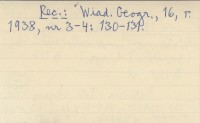 Rec.: Wiad. Geogr., 16, r.
1938, nr 3-4: 130-131.